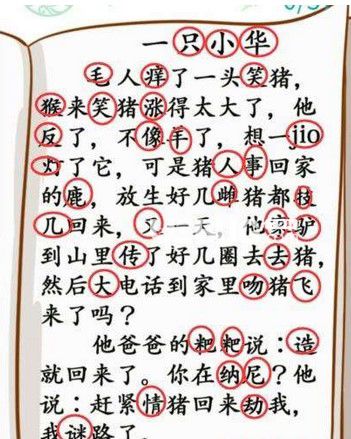 一只小华
毛人痒了一头笑猪，
猴来笑猪涨得太大了，他
反了，不像羊了，想一jio
灯了它，可是猪人事回家
的鹿，放生好几雌猪都找
几回来，又一天，他 驴
到山里传了好几圈去去猪，
然后大电话到家里吻猪飞
来了吗？
他爸爸的粑粑说：造
就回来了。你在纳尼？他
说：赶紧情猪回来劫我，
我谜路了。